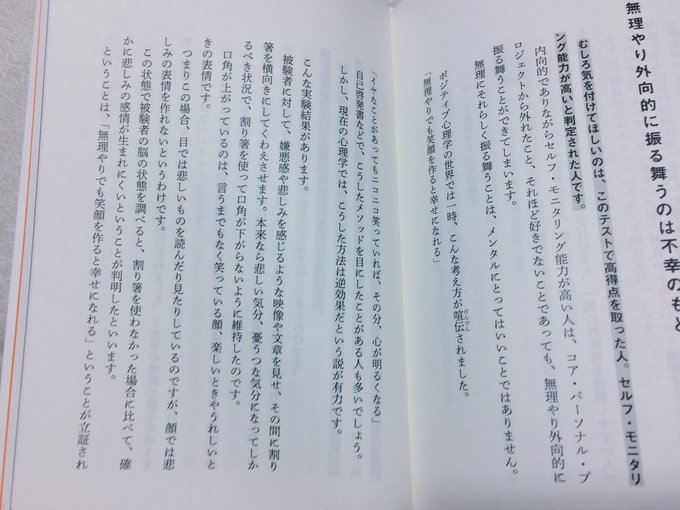 無理やり外向的に振る舞うのは不幸のもと
むしろ気を付けてほしいのは、このテストで高得点を取った人。セルフ・モニタリ
ング能力が高いと判定された人です。
内向的でありながらセルフ・モニタリング能力が高い人は、コア・パーソナル・プ
ロジェクトから外れたこと、それほど好きでないことであっても、無理やり外向的に
振る舞うことができてしまいます。
無理にそれらしく振る舞うことは、メンタルにとってはいいことではありません。
ポジティブ心理学の世界では一時、こんな考え方が喧伝されました。
けんでん
「無理やりでも笑顔を作ると幸せになれる」
「イヤなことがあってもニコニコ笑っていれば、その分、心が明るくなる」
自己啓発書などで、こうしたメソッドを目にしたことがある人も多いでしょう。
しかし、現在の心理学では、こうした方法は逆効果だという説が有力です。
こんな実験結果があります。
被験者に対して、嫌悪感や悲しみを感じるような映像や文章を見せ、その間に割り
箸を横向きにしてくわえさせます。本来なら悲しい気分、憂うつな気分になってしか
るべき状況で、割り箸を使って口角が下がらないように維持したのです。
口角が上がっているのは、言うまでもなく笑っている顔、楽しいときやうれしいと
きの表情です。
つまりこの場合、目では悲しいものを読んだり見たりしているのですが、顔では悲
しみの表情を作れないというわけです。
この状態で被験者の脳の状態を調べると、割り箸を使わなかった場合に比べて、確
かに悲しみの感情が生まれにくいということが判明したといいます。
ということは、「無理やりでも笑顔を作ると幸せになれる」ということが立証され